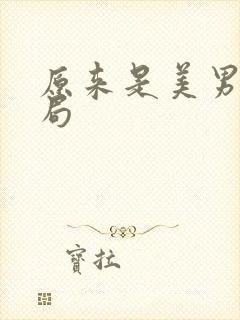 原来是美男
局
寶拉